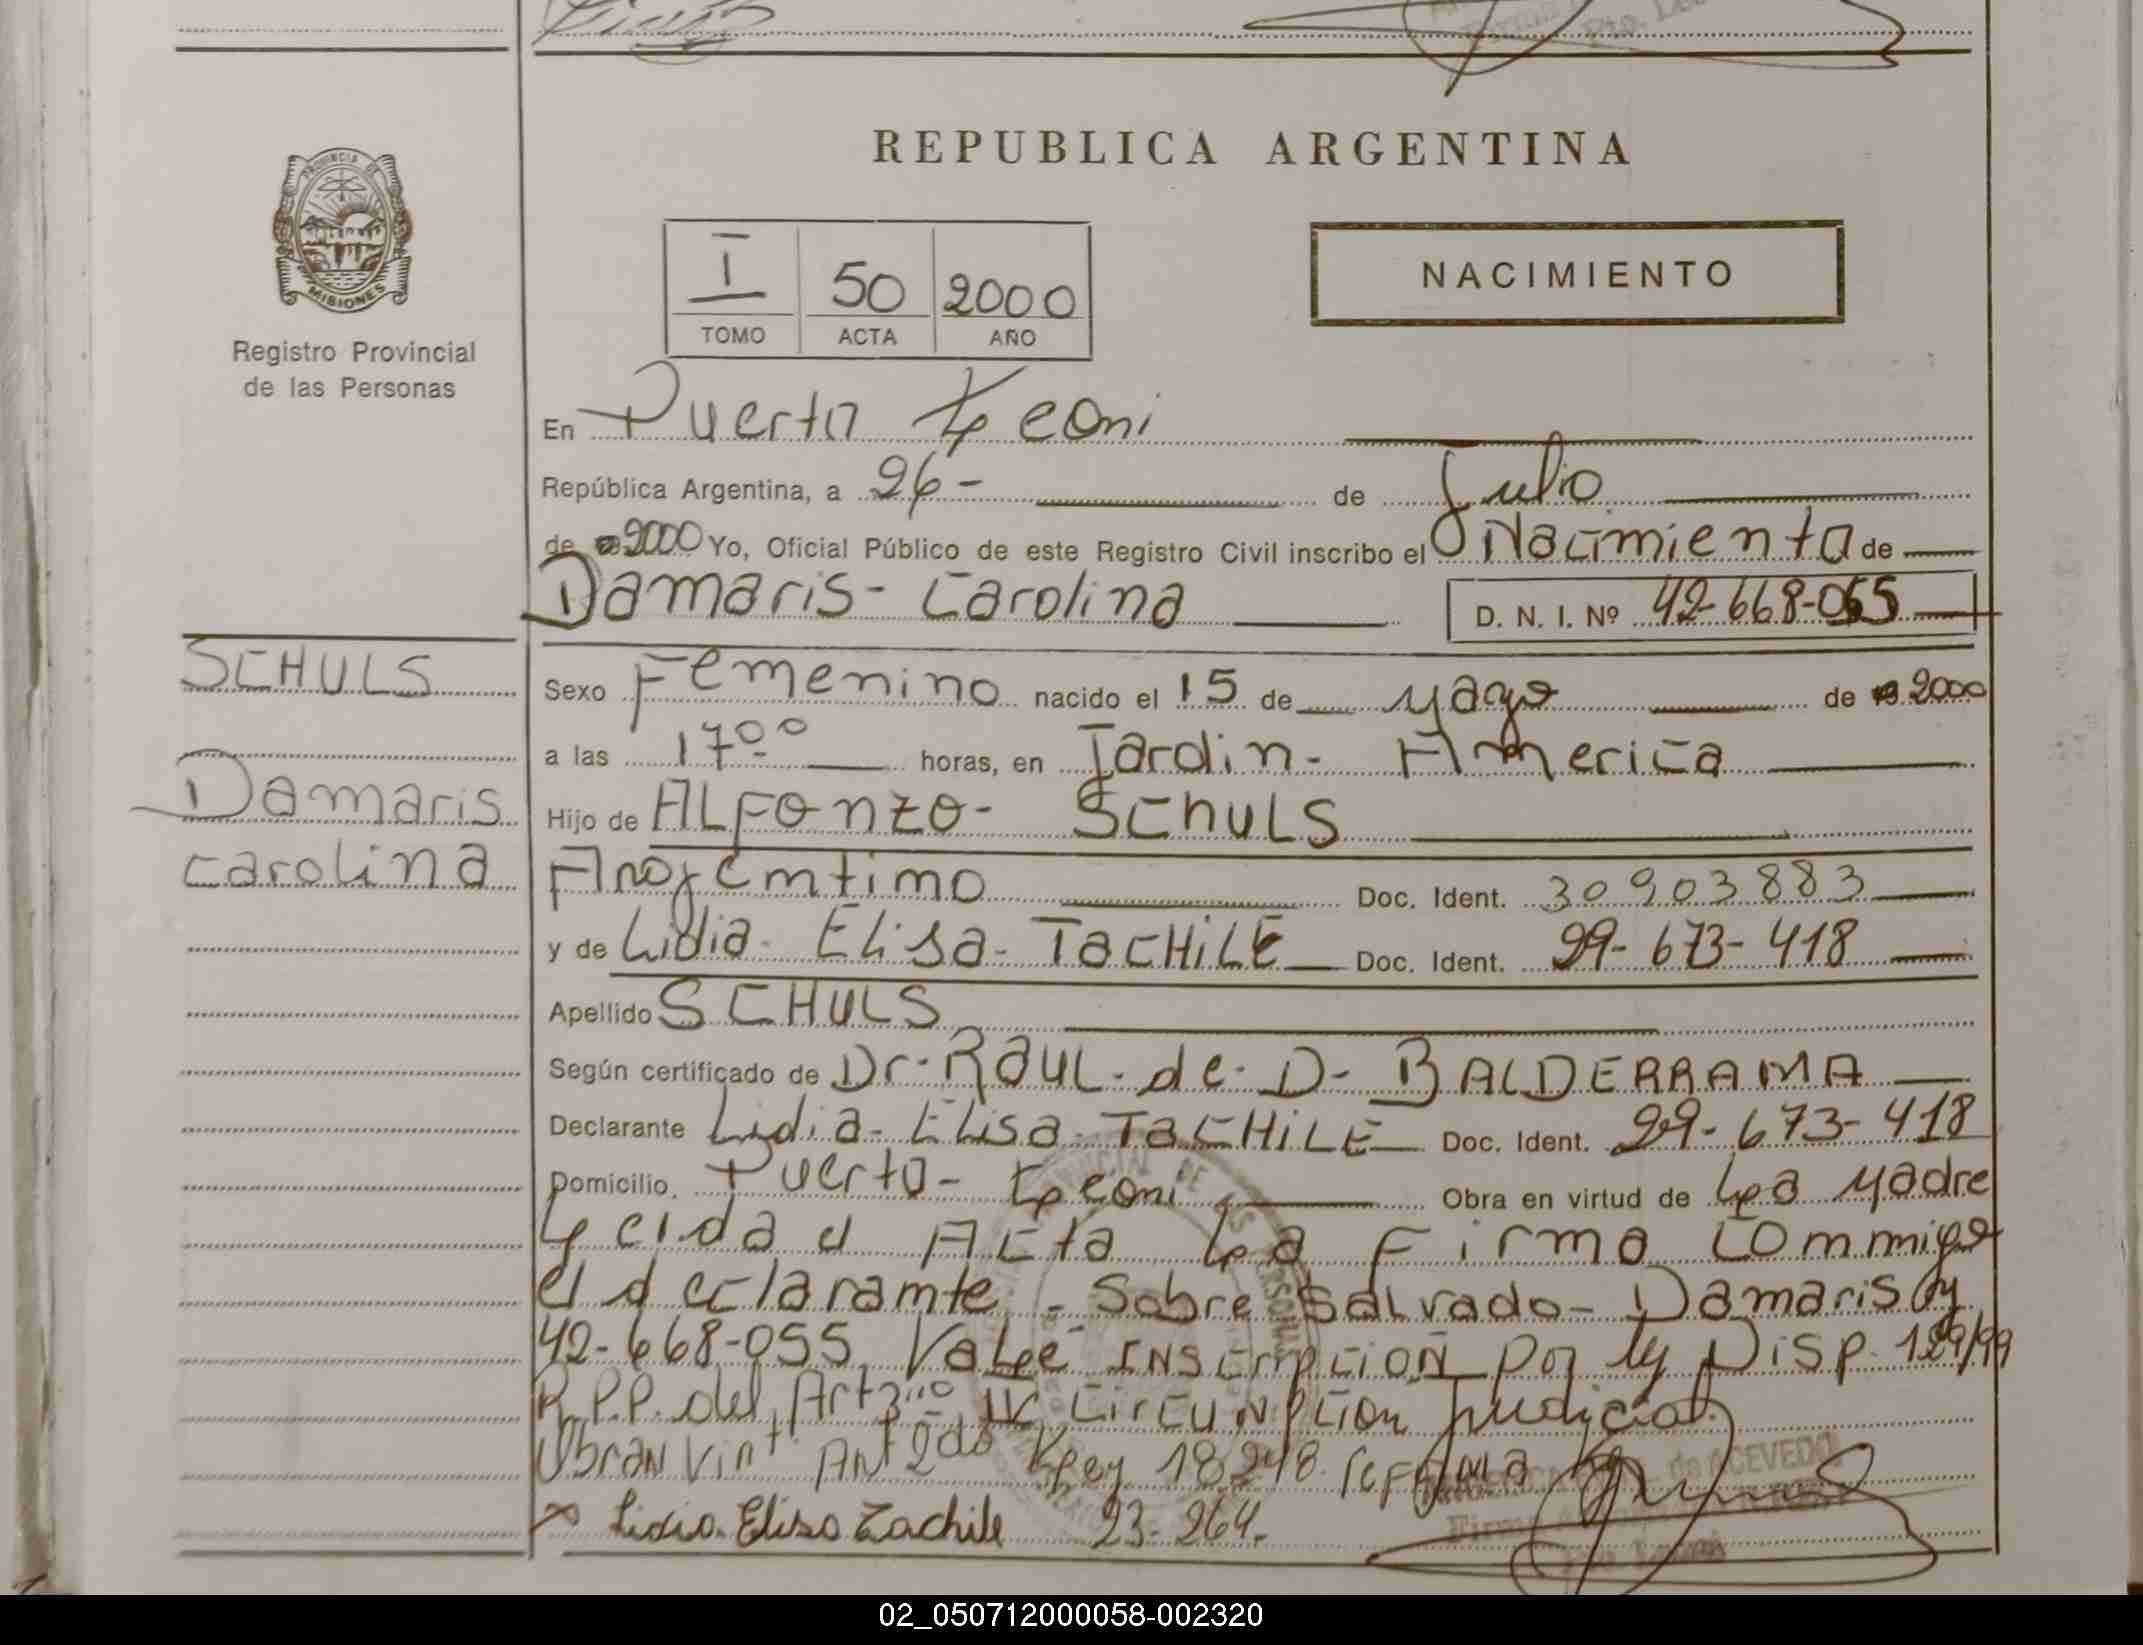 REPUBLICA ARGENTINA
PROVINCIA DE
MISIONES
Registro Provincial
de las Personas
I 50 2000
TOMO ACTA AÑO
NACIMIENTO
En Puerto Leoni
República Argentina, a 26- de Julio
de 2000 Yo, Oficial Público de este Registro Civil inscribo el Nacimiento de
Damaris- Carolina D. N. I. Nº 42-668-055
SCHULS
Damaris
Carolina
Sexo Femenino nacido el 15 de Mayo de 2000
a las 17ºº horas, en Jardin- America
Hijo de ALFONZO- SChULS
Argentino Doc. Ident. 30903883
y de Lidia- Elisa- TACHILE Doc. Ident. 29-673-418
Apellido SCHULS
Según certificado de Dr- RAUL- de- D- BALDERRAMA
Declarante Lidia- Elisa- TACHILE Doc. Ident. 29-673-418
Domicilio Puerto- Leoni Obra en virtud de La Madre
Leida el Acta La Firma Conmigo
el declarante - Sobre Salvado- Damaris y
42-668-055 Vale INSCripCION por Disp. 129/99
R.P.P. del Art 3 IV CirCUNSCION Judicial
Obran Art 2do Ley 18.248.
Lidia Elisa Tachile 23-264-
de ACEVEDO
02_050712000058-002320